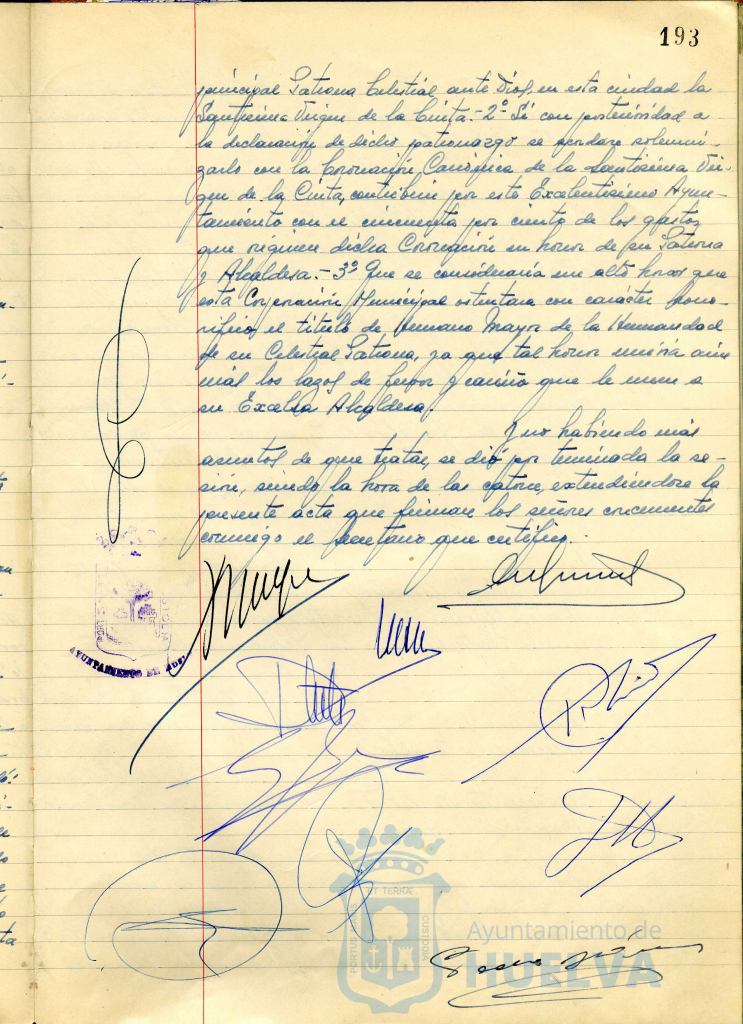 193
principal Patrona Celestial ante Dios, en esta ciudad la
Santísima Virgen de la Cinta.- 2º Si con posterioridad a
la declaración de dicho patronazgo se acordara solemni-
zarlo con la Coronación Canónica de la Santísima Vir-
gen de la Cinta, contribuir por este Excelentísimo Ayun-
tamiento con el cincuenta por ciento de los gastos
que originen dicha Coronación en honor de su Patrona
y Alcaldesa.- 3º Que se consideraría un alto honor que
esta Corporación Municipal ostentara con carácter hono-
rífico, el título de Hermano Mayor de la Hermandad
de su Celestial Patrona, ya que tal honor uniría aún
más los lazos de fervor y cariño que le unen a
su Excelsa Alcaldesa.
Y no habiendo más
asuntos de que tratar, se dió por terminada la se-
sión, siendo la hora de las catorce, extendiéndose la
presente acta que firman los señores concurrentes
conmigo el Secretario que certifico.-
AYUNTAMIENTO DE
PORTUS MARIS
ET TERRÆ
CUSTODIA
Ayuntamiento de
HUELVA